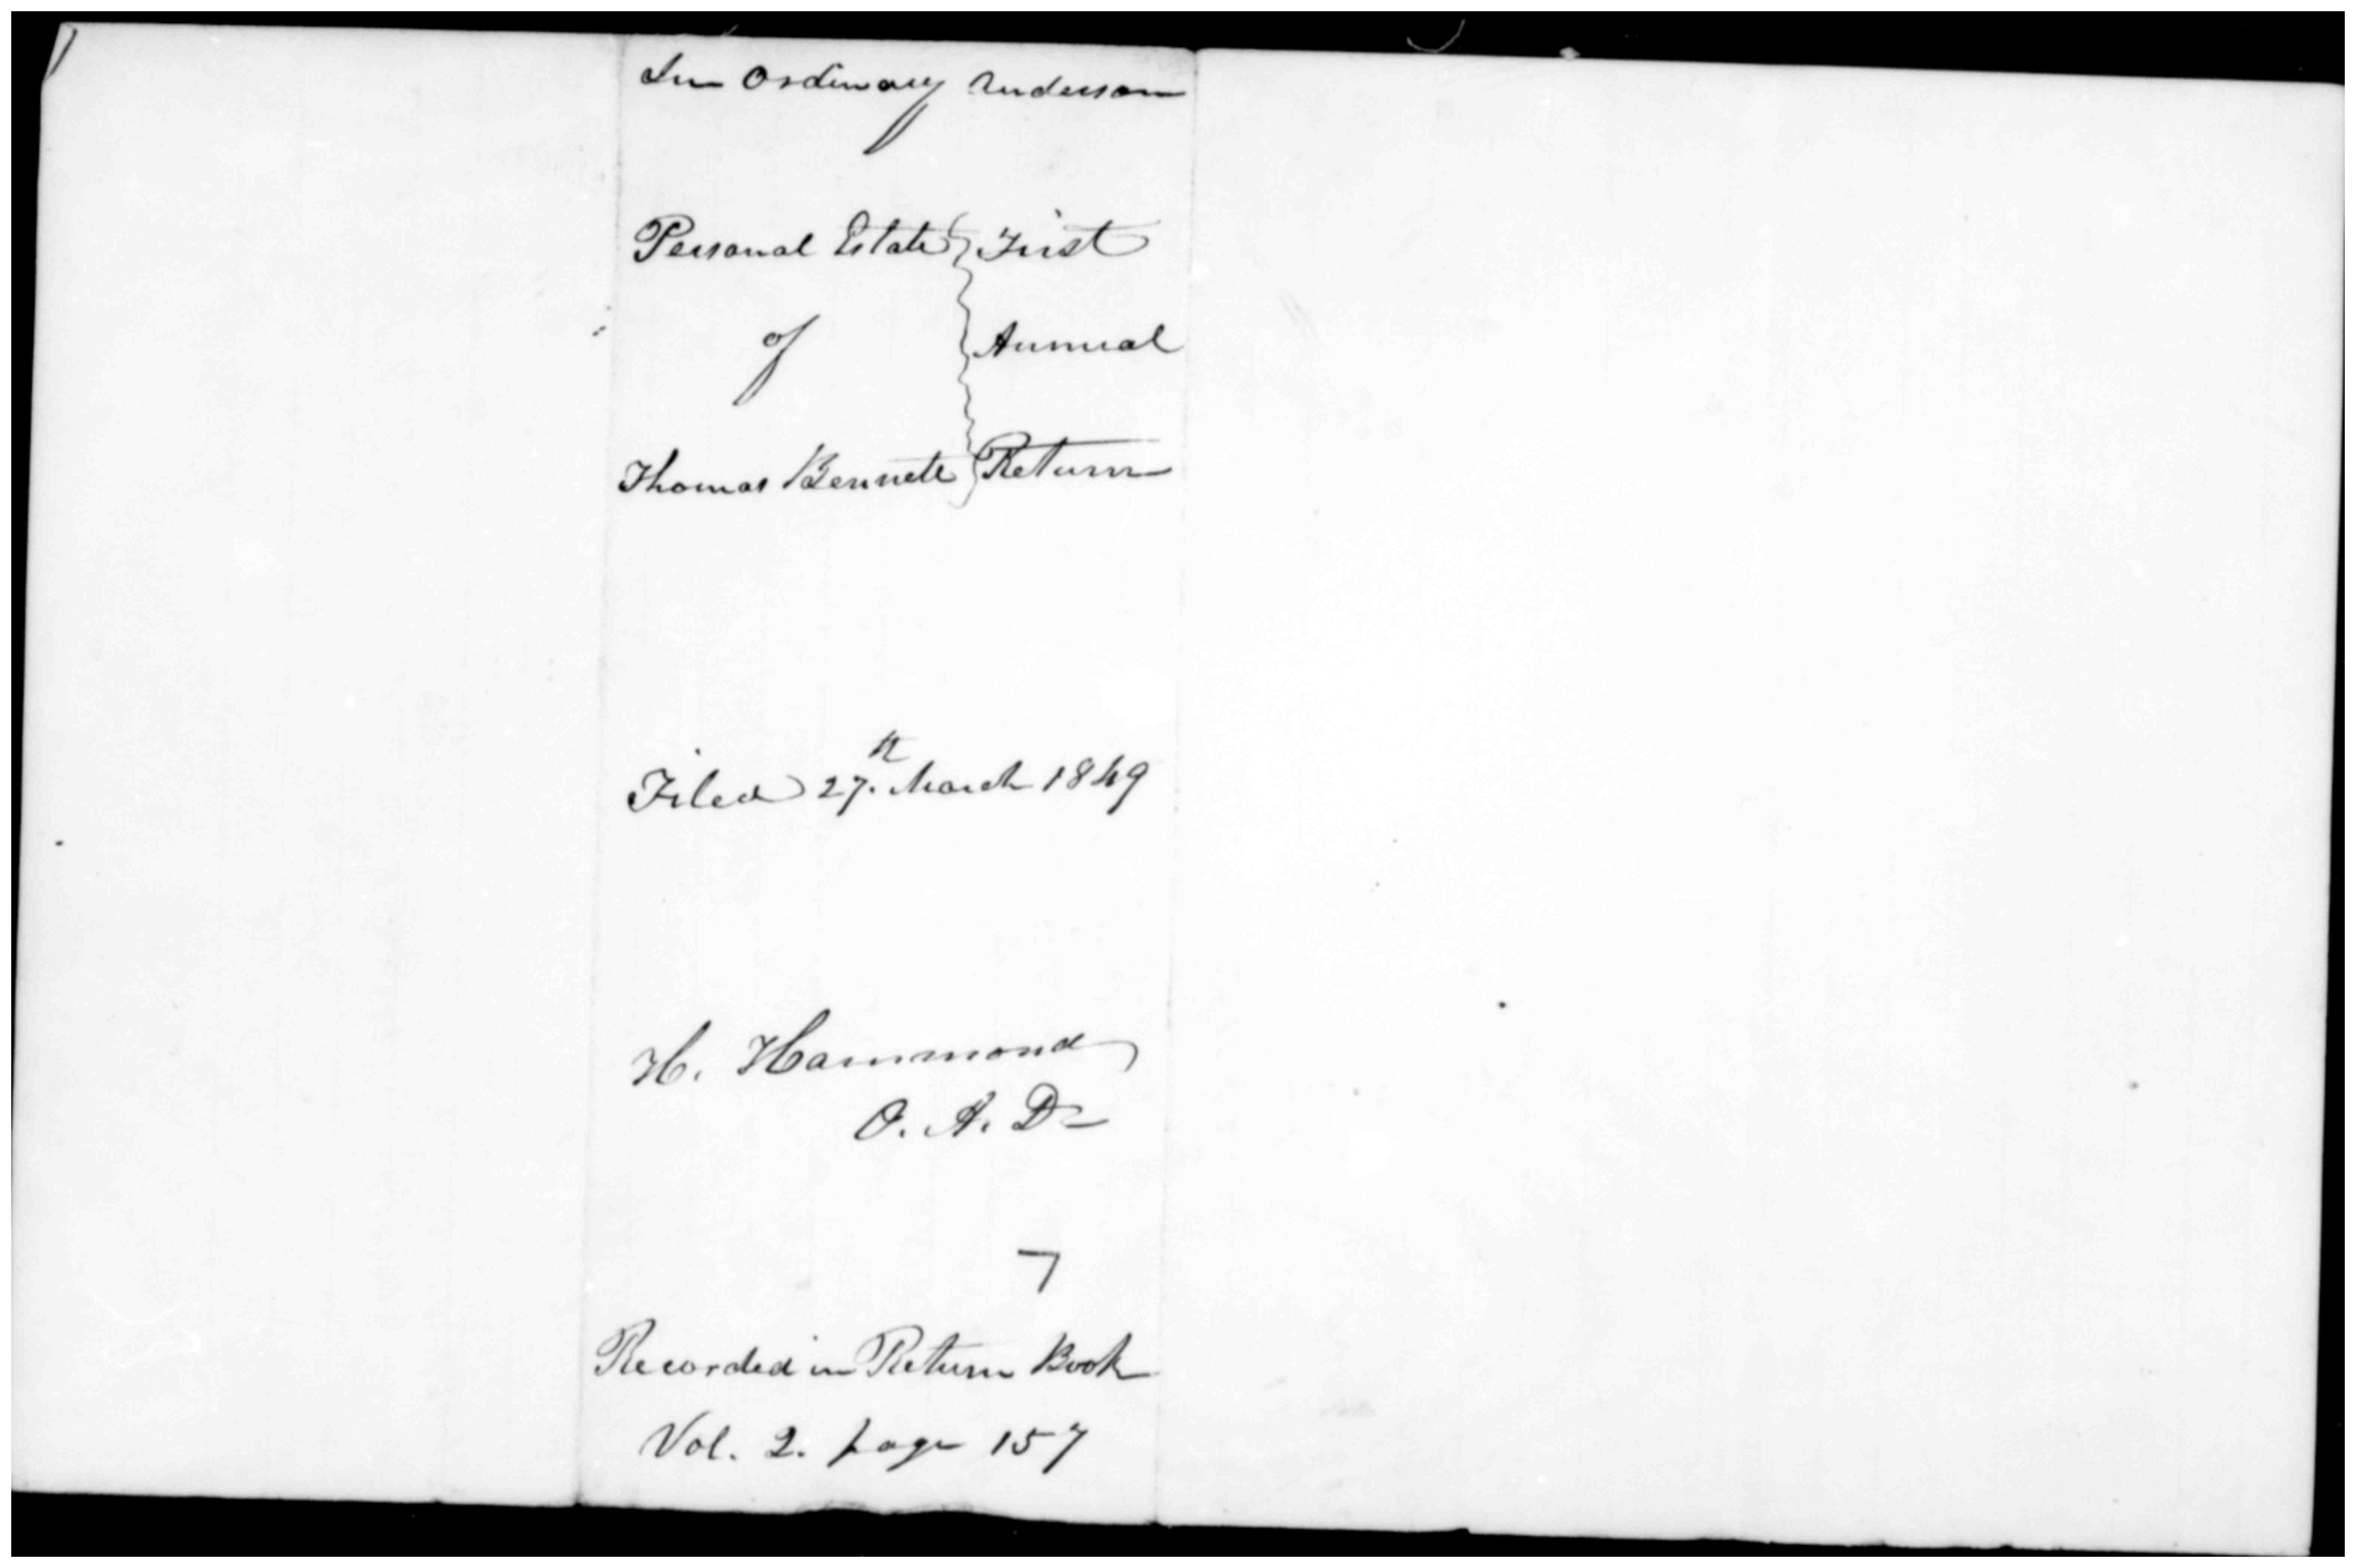 In Ordinary Anderson
Personal Estate } First
of } Annual
Thomas Bennett } Return
Filed 27th. March 1849
H. Hammond
O. A. D
7
Recorded in Return Book
Vol. 2. page 157